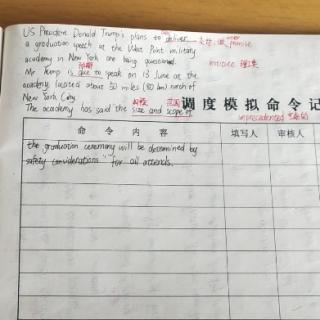 US President Donald Trump's plans to deliver
a graduation speech at the West Point military
academy in New York are being questioned.
Mr Trump is due to speak on 13 June at the
academy located about 50 miles (80 km) north of
New York City.
The academy has said the size and scope of
unprecedented
调度模拟命令记
命 令 内 容 填写人 审核人
the graduation ceremony will be determined by
safety considerations" for all attends.